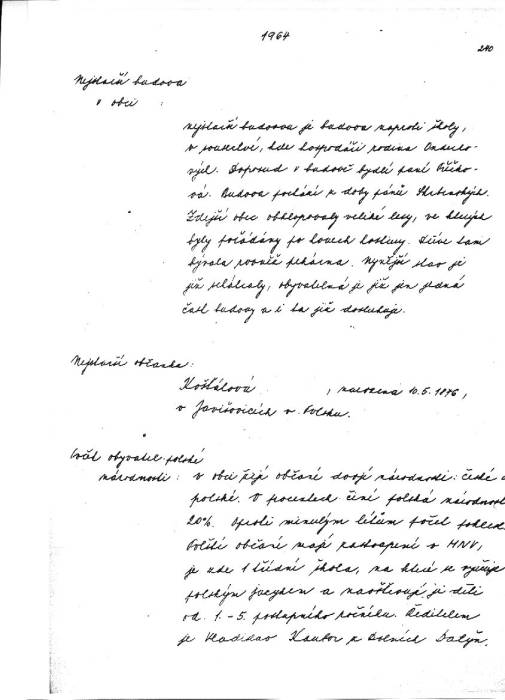 1964
240
Nejstarší budova
v obci :
nejstarší budovou je budova naproti školy,
v sousedství, kde hospodaří rodina Ondru-
Doposud v budově bydlí paní
vá. Budova pochází z doby pánů
Zdejší obec obklopovaly veliké lesy, ve kterých
byly pořádány po lovech hostiny. Dříve tam
bývala rovněž pekárna. Nynější stav je
již zchátralý, obyvatelná je již jen jedná
část budovy a i ta již dosluhuje.
Nejstarší občanka :
Košťálová , narozená 10.5.1876,
v Javišovicích v Polsku.
Počet obyvatel polské
národnosti : v obci žijí občané dvojí národnosti : české a
polské. V procentech činí polská národnost
20%. Oproti minulým létům počet
Polští občané mají zastoupení v MNV,
je zde 1 třídní škola, na které se vyučuje
polským jazykem a navštěvují ji děti
od 1.-5. postupního ročníku. Ředitelem
je Vladislav Kantor z Dolních